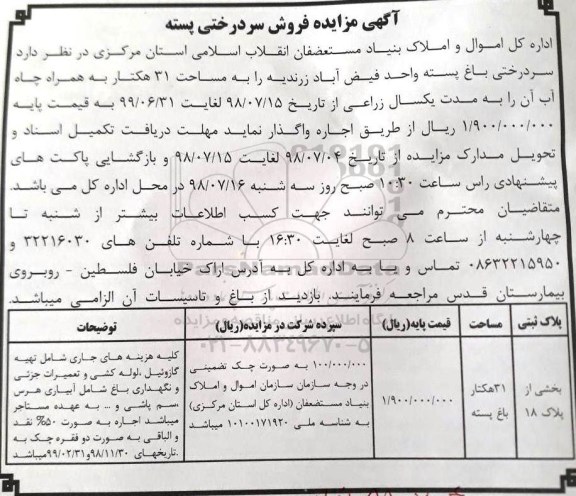 آگهی مزایده فروش سردرختی پسته
اداره کل اموال و املاک بنیاد مستعضفان انقلاب اسلامی استان مرکزی در نظر دارد
سردرختی باغ پسته واحد فیض آباد زرندیه را به مساحت ۳۱ هکتار به همراه چاه
آب آن را به مدت یکسال زراعی از تاریخ ۹۸/۰۷/۱۵ لغایت ۹۹/۰۶/۳۱ به قیمت پایه
۱/۹۰۰/۰۰۰/۰۰۰ ریال از طریق اجاره واگذار نماید مهلت دریافت تکمیل اسناد و
تحویل مدارک مزایده از تاریخ ۹۸/۰۷/۰۴ لغایت ۹۸/۰۷/۱۵ و بازگشایی پاکت های
پیشنهادی راس ساعت ۱۰:۳۰ صبح روز سه شنبه ۹۸/۰۷/۱۶ در محل اداره کل می باشد.
متقاضیان محترم می توانند جهت کسب اطلاعات بیشتر از شنبه تا
چهارشنبه از ساعت ۸ صبح لغایت ۱۶:۳۰ با شماره تلفن های ۳۲۲۱۶۰۳۰ و
۰۸۶۳۲۲۱۵۹۵۰ تماس و یا به اداره کل به آدرس اراک خیابان فلسطین - روبروی
بیمارستان قدس مراجعه فرمایند. بازدید از باغ و تاسیسات آن الزامی میباشد.
پلاک ثبتی مساحت قیمت پایه(ریال) سپرده شرکت در مزایده(ریال) توضیحات
بخشی از پلاک ۱۸
۳۱هکتار باغ پسته
۱/۹۰۰/۰۰۰/۰۰۰
۱۰۰/۰۰۰/۰۰۰ به صورت چک تضمینی
در وجه سازمان سازمان اموال و املاک
بنیاد مستضعفان (اداره کل استان مرکزی)
به شناسه ملی ۱۰۱۰۰۱۷۱۹۲۰ میباشد
کلیه هزینه های جاری شامل تهیه
گازوئیل ،لوله کشی و تعمیرات جزئی
و نگهداری باغ شامل آبیاری هرس
،سم پاشی و ... به عهده مستاجر
میباشد اجاره به صورت ۵۰% نقد
و الباقی به صورت دو فقره چک به
تاریخهای ۹۸/۱۱/۳۰و۹۹/۰۲/۳۱میباشد.
۰۲۱-۸۸۳۴۹۶۷۰-۵